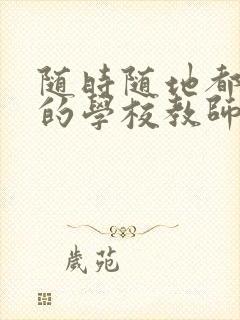 随時随地都
的學校教師
歲苑